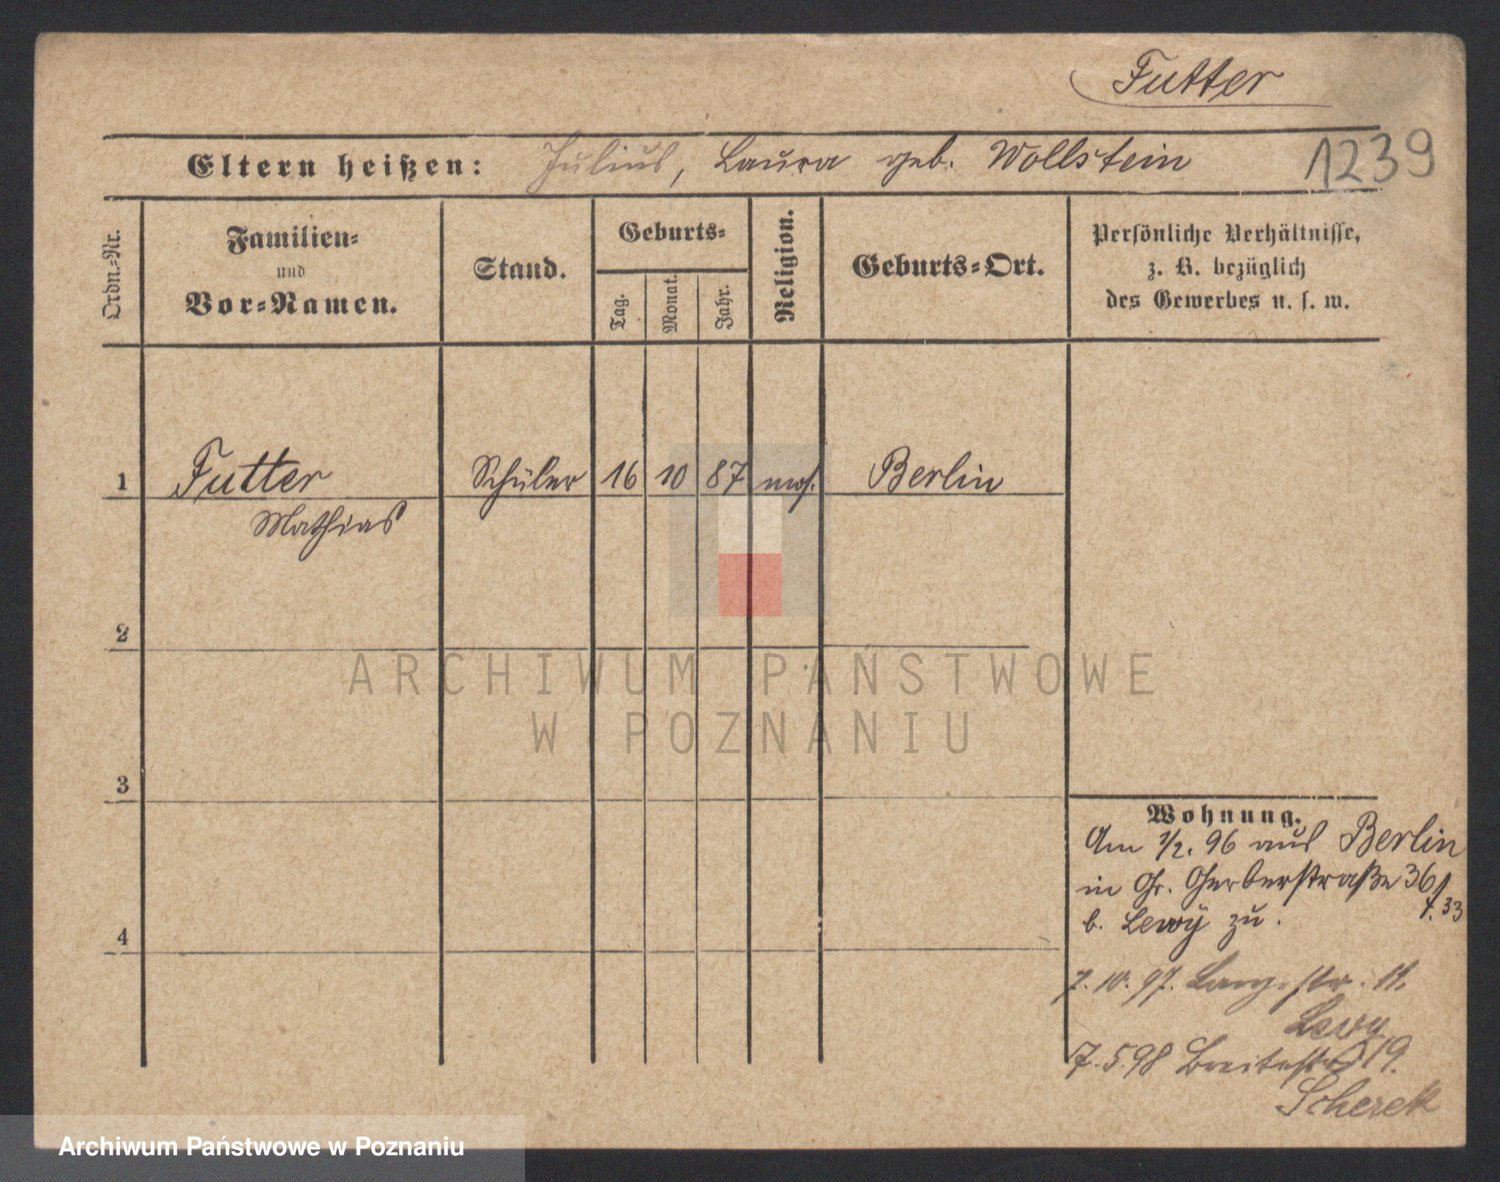 Futter
1239
Eltern heißen: Julius, Laura geb. Wollstein
Ordn.-Nr.
Familien-
und
Vor-Namen.
Stand.
Geburts-
Tag.
Monat.
Jahr.
Religion.
Geburts-Ort.
Persönliche Verhältnisse,
z. B. bezüglich
des Gewerbes u. s. w.
1 Futter Schüler 16 10 87 mos. Berlin
Mathias
2
3
4
Wohnung.
Am 1/2. 96 aus Berlin
in Gr. Gerberstraße 36
b. Lewy zu.
7. 10. 97. Lang. str. 11.
Lewy
7. 5. 98 Breitestr 19.
Scherek
ARCHIWUM PAŃSTWOWE
W POZNANIU
Archiwum Państwowe w Poznaniu